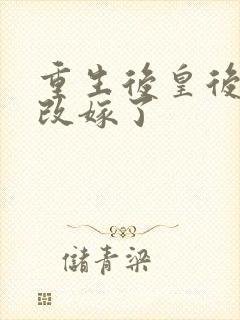 重生後皇後
改嫁了
儲青梁